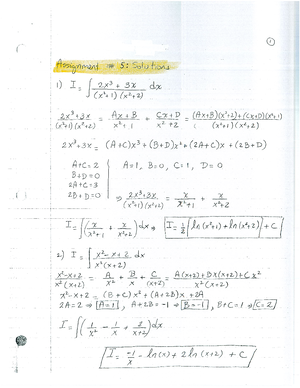 ①
Assignment # 5: Solutions
1) I = ∫ (2x³ + 3x) / ((x²+1)(x²+2)) dx
(2x³+3x) / ((x²+1)(x²+2)) = (Ax+B) / (x²+1) + (Cx+D) / (x²+2) = ((Ax+B)(x²+2)+(Cx+D)(x²+1)) / ((x²+1)(x²+2))
2x³+3x = (A+C)x³+(B+D)x²+(2A+C)x+(2B+D)
A+C=2
B+D=0
2A+C=3
2B+D=0
A=1, B=0, C=1, D=0
⇒ (2x³+3x) / ((x²+1)(x²+2)) = x / (x²+1) + x / (x²+2)
I = ∫(x / (x²+1) + x / (x²+2)) dx ⇒ I = 1/2 [ln(x²+1)+ln(x²+2)] + C
2) I = ∫ (x²-x+2) / (x²(x+2)) dx
(x²-x+2) / (x²(x+2)) = A / x² + B / x + C / (x+2) = (A(x+2)+Bx(x+2)+Cx²) / (x²(x+2))
x²-x+2 = (B+C)x²+(A+2B)x+2A
2A=2 ⇒ A=1, A+2B=-1 ⇒ B=-1, B+C=1 ⇒ C=2
I = ∫(1 / x² - 1 / x + 2 / (x+2)) dx
I = -1/x - ln(x) + 2 ln(x+2) + C